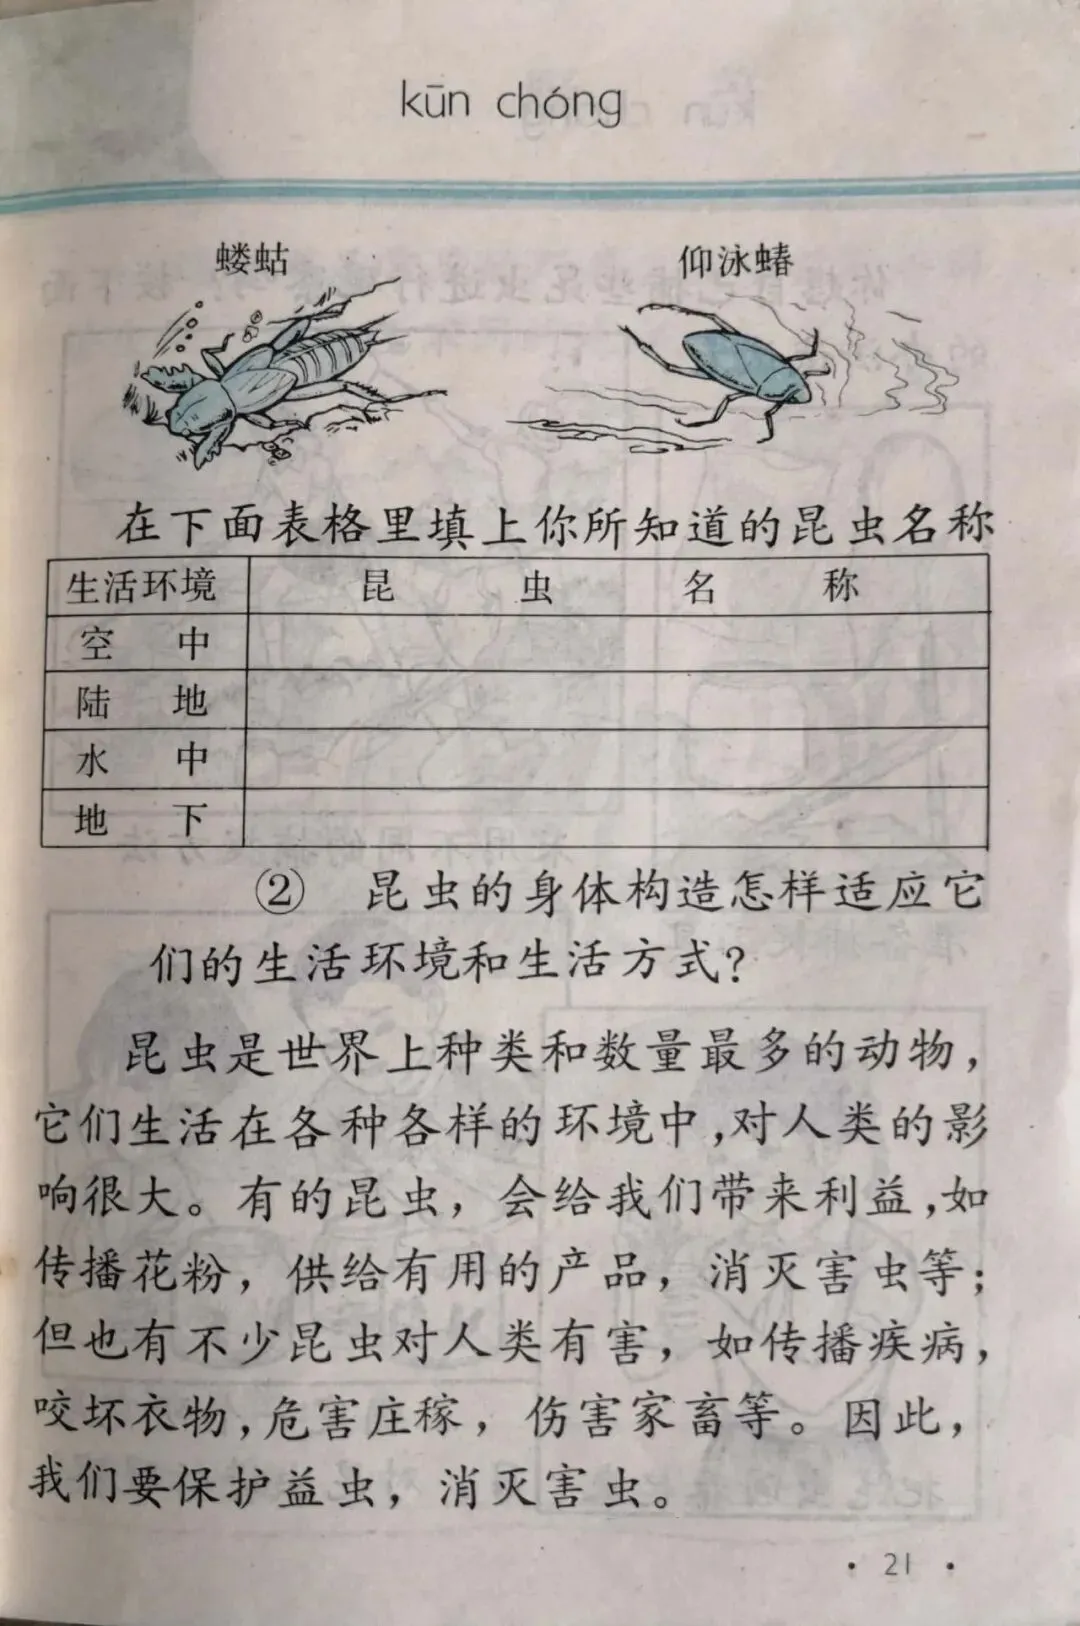 kūn chóng
蝼蛄
仰泳蝽
在下面表格里填上你所知道的昆虫名称
生活环境 昆虫名称
空中
陆地
水中
地下
② 昆虫的身体构造怎样适应它
们的生活环境和生活方式?
昆虫是世界上种类和数量最多的动物，
它们生活在各种各样的环境中,对人类的影
响很大。有的昆虫，会给我们带来利益,如
传播花粉，供给有用的产品，消灭害虫等；
但也有不少昆虫对人类有害，如传播疾病，
咬坏衣物,危害庄稼，伤害家畜等。因此，
我们要保护益虫，消灭害虫。
· 21 ·